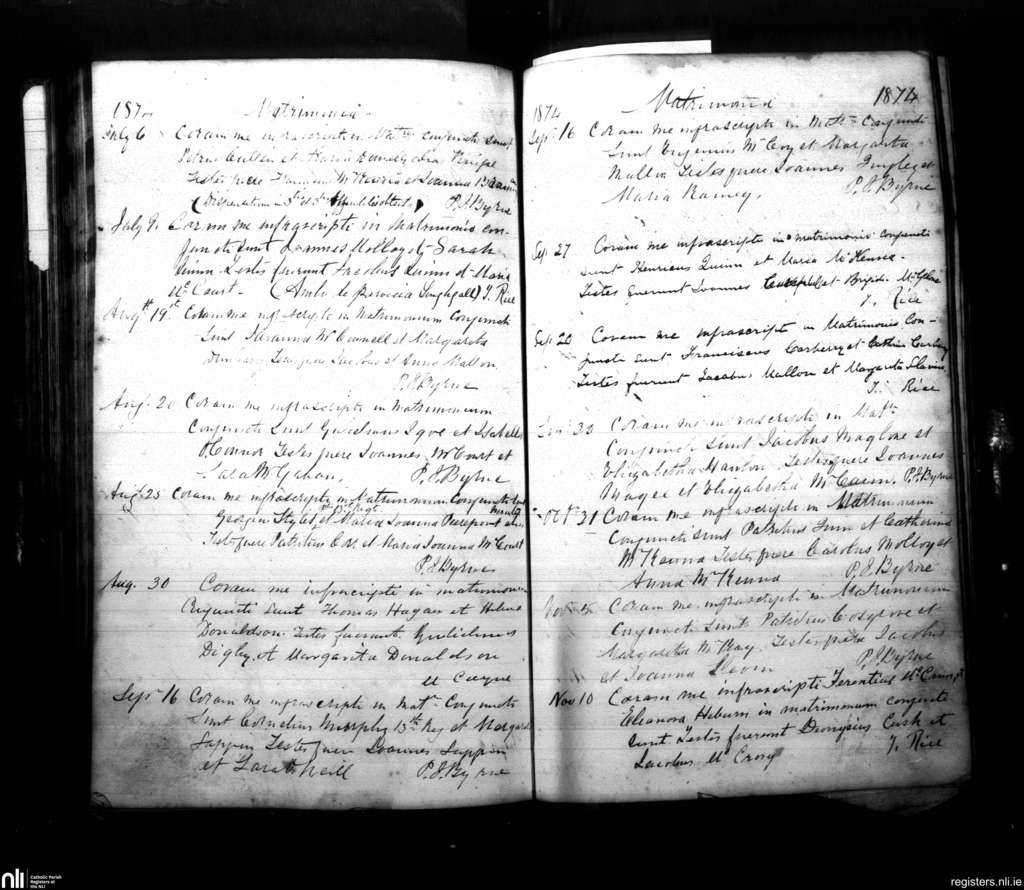 187
Matrimonia
July 6 Coram me infrascripto in conjuncti sunt
Petrus Cullen et Maria
Testes fuere et Joanna
(Dispensation in P.J. Byrne
July 9. Coram me infrascripto in Matrimonio con-
juncti sunt Joannes Molloy et Sarah
Quinn Testes fuerunt Jacobus Quinn et Maria
McCourt. (Ambo de Parocia Loughgall) T. Rice
Augst 19th Coram me infrascripto in Matrimonium Conjuncti
Sunt McConnell et Margareta
Testes fuere Jacobus et Anna Mallon
P.J. Byrne
Aug. 20 Coram me infrascripto in Matrimonium
Conjuncti Sunt Gulielmus Igoe et Isabella
O'Connor Testes fuere Joannes McCourt et
Sara McGahan, P.J. Byrne
Aug 25 Coram me infrascripto in Matrimonium Conjuncti Sunt
Georgius Styles et Maria Joanna Pierepoint
Testes fuere Patritius et Maria Joanna McCourt
P.J. Byrne
Aug. 30 Coram me infrascripto in matrimonium
Conjuncti Sunt Thomas Hagan et Helena
Donaldson. Testes fuerunt, Gulielmus
Digby et Margarita Donaldson
M Coyne
Sept 16 Coram me infrascripto in Matm Conjuncti
Sunt Cornelius Murphy 13th Reg et Margarita
Sappin Testes fuere Joannes Sappin
et Sara Neill P.J. Byrne
1874 Matrimonia 1874
Sept 16 Coram me infrascripto in Matm Conjuncti
Sunt Eugenius McCoy et Margarita
Mallon Testes fuere Joannes et
Maria Rainey. P.J. Byrne
Sep. 27 Coram me infrascripto in matrimonio conjuncti
sunt Henricus Quinn et Maria McKenna.
Testes fuerunt Joannes Campbell et Brigid.
T. Rice
Sep. 20 Coram me infrascripto in Matrimonio Con-
juncti sunt Franciscus Carberry et Cathn
Testes fuerunt Jacobus Mallon et Margarita Slavin
T. Rice
Coram me infrascripto in Matm
Conjuncti Sunt Jacobus Maglone et
Elizabetha Hanlon. Testes fuere Joannes
Magee et Elizabetha McCann. P.J. Byrne
Oct 21 Coram me infrascripto in Matrimonium
Conjuncti sunt Patritius et Catharina
McKenna Testes fuere Carolus Molloy et
Anna McKenna P.J. Byrne
Coram me infrascripto in Matrimonium
Conjuncti Sunt Patritius Cosgrove et
Margareta McKay. Testes fuere Jacobus
et Joanna Slevin P.J. Byrne
Nov 10 Coram me infrascripto Terentius McCann et
Eleanora Hoburn in matrimonium conjuncti
Sunt Testes fuerunt Dionysius Cush et
Jacobus McCrory T. Rice
nli
Catholic Parish
Registers at
the NLI
registers.nli.ie